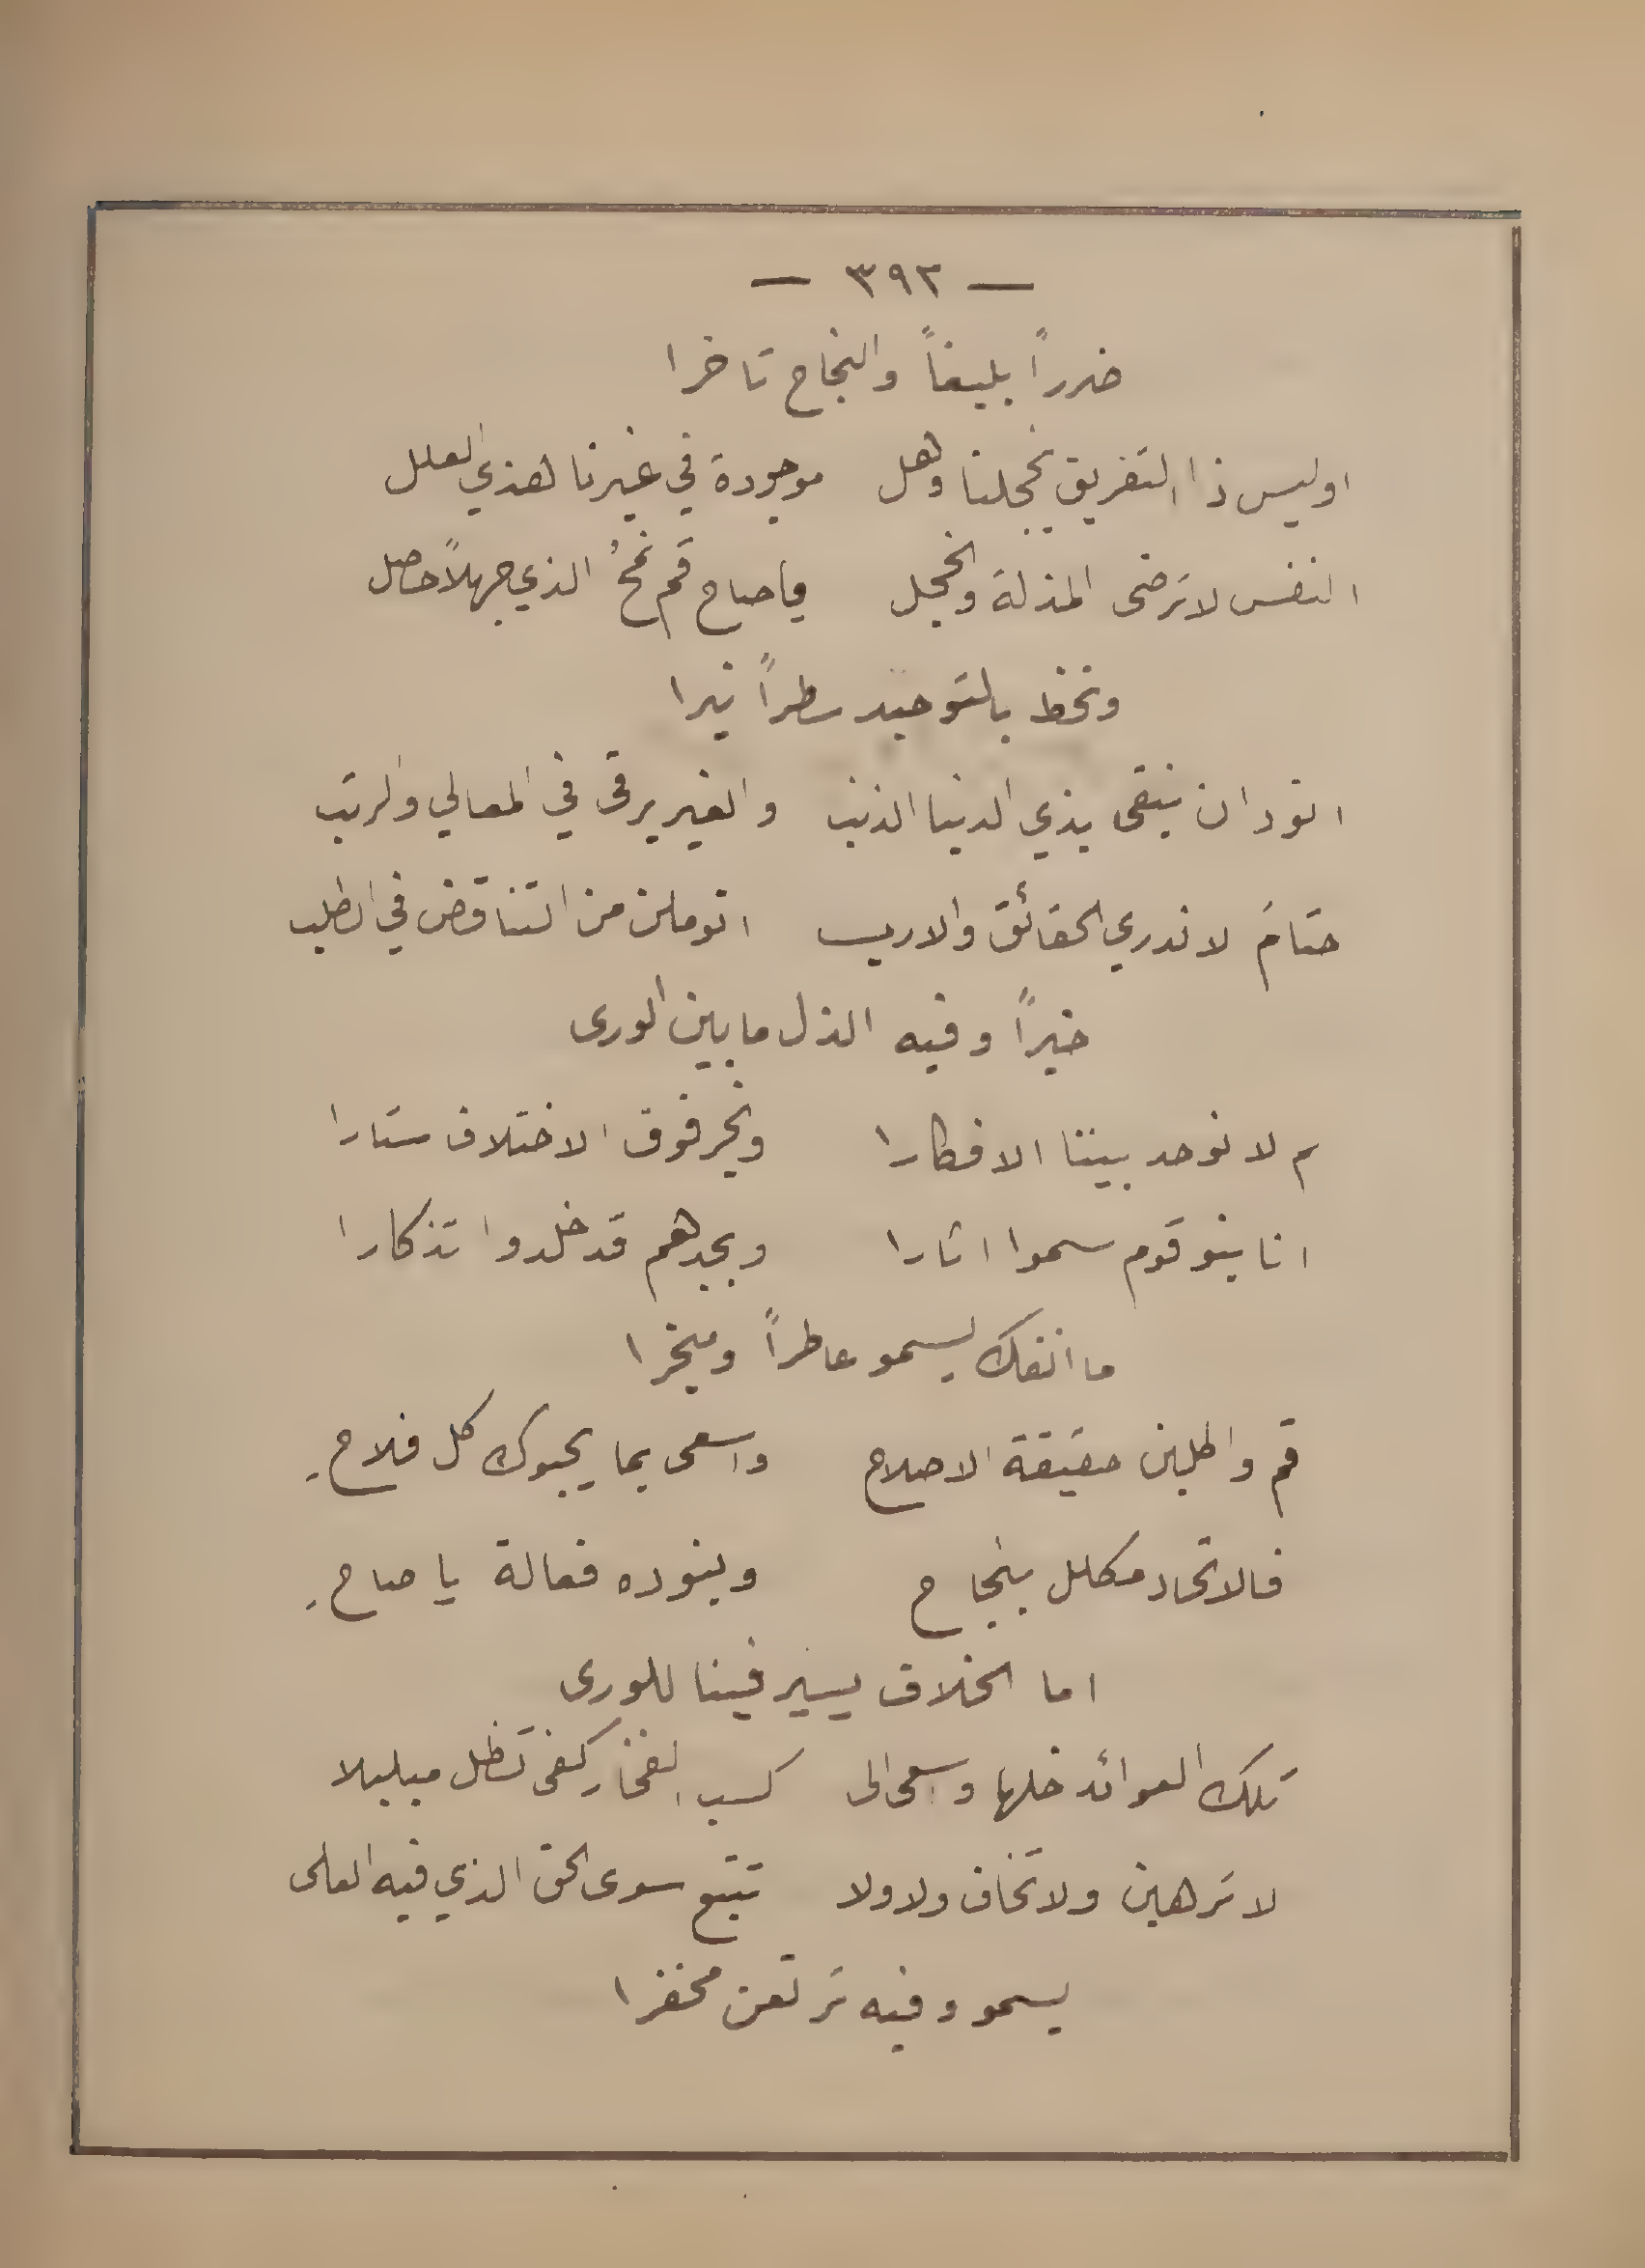 — ٣٩٢ —
ضرراً بليغاً والنجاح تاخرا
اوليس ذا التفريق يخجلنا وهل موجودة في غيرنا هذي العلل
النفس لا ترضى المذلة والخجل يا صاح قم نمحُ الذي جهلاً حصل
ونخط بالتوحيد سطراً نيرا
انود ان نبقى بذي الدنيا الذنب والغير يرقى في المعالي والرتب
حتامَ لا ندري الحقائق والارب اتوملن من التناقض في الطلب
خيراً وفيه الذل ما بين الورى
لم لا نوحد بيننا الافكارا ونجر فوق الاختلاف ستارا
انا بنو قوم سموا اثارا وبجدهم قد خلدوا تذكارا
ما انفك يسمو عاطراً ومبخرا
قم واطلبن حقيقة الاصلاح واسعى بما يحبوك كل فلاحِ
فالاتحاد مكلل بنجاح وبنوده فعالة يا صاحِ
اما الخلاف يسير فينا للورى
تلك العوائد خلها واسعى الى كسب الفخار كفى تظل مبلبلا
لا ترهبن ولا تخاف ولا ولا تتبع سوى الحق الذي فيه العلى
يسمو وفيه ترتقن مخفرا